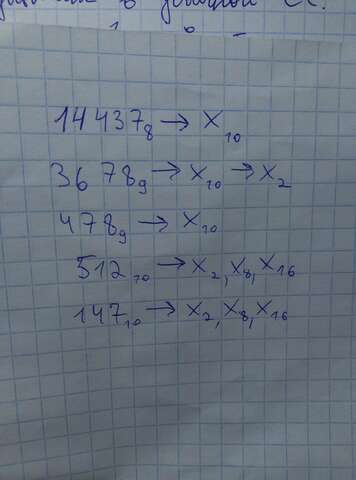 в условной СС.
14437₈ → X₁₀
3678₉ → X₁₀ → X₂
478₉ → X₁₀
512₁₀ → X₂, X₈, X₁₆
147₁₀ → X₂, X₈, X₁₆